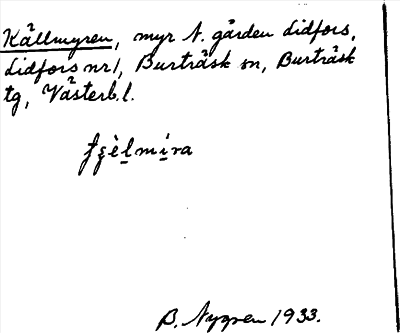 Källmyren, myr N. gården Lidfors,
Lidfors nr 1, Burträsk sn, Burträsk
tg, Västerb. l.
B. Nygren 1933.